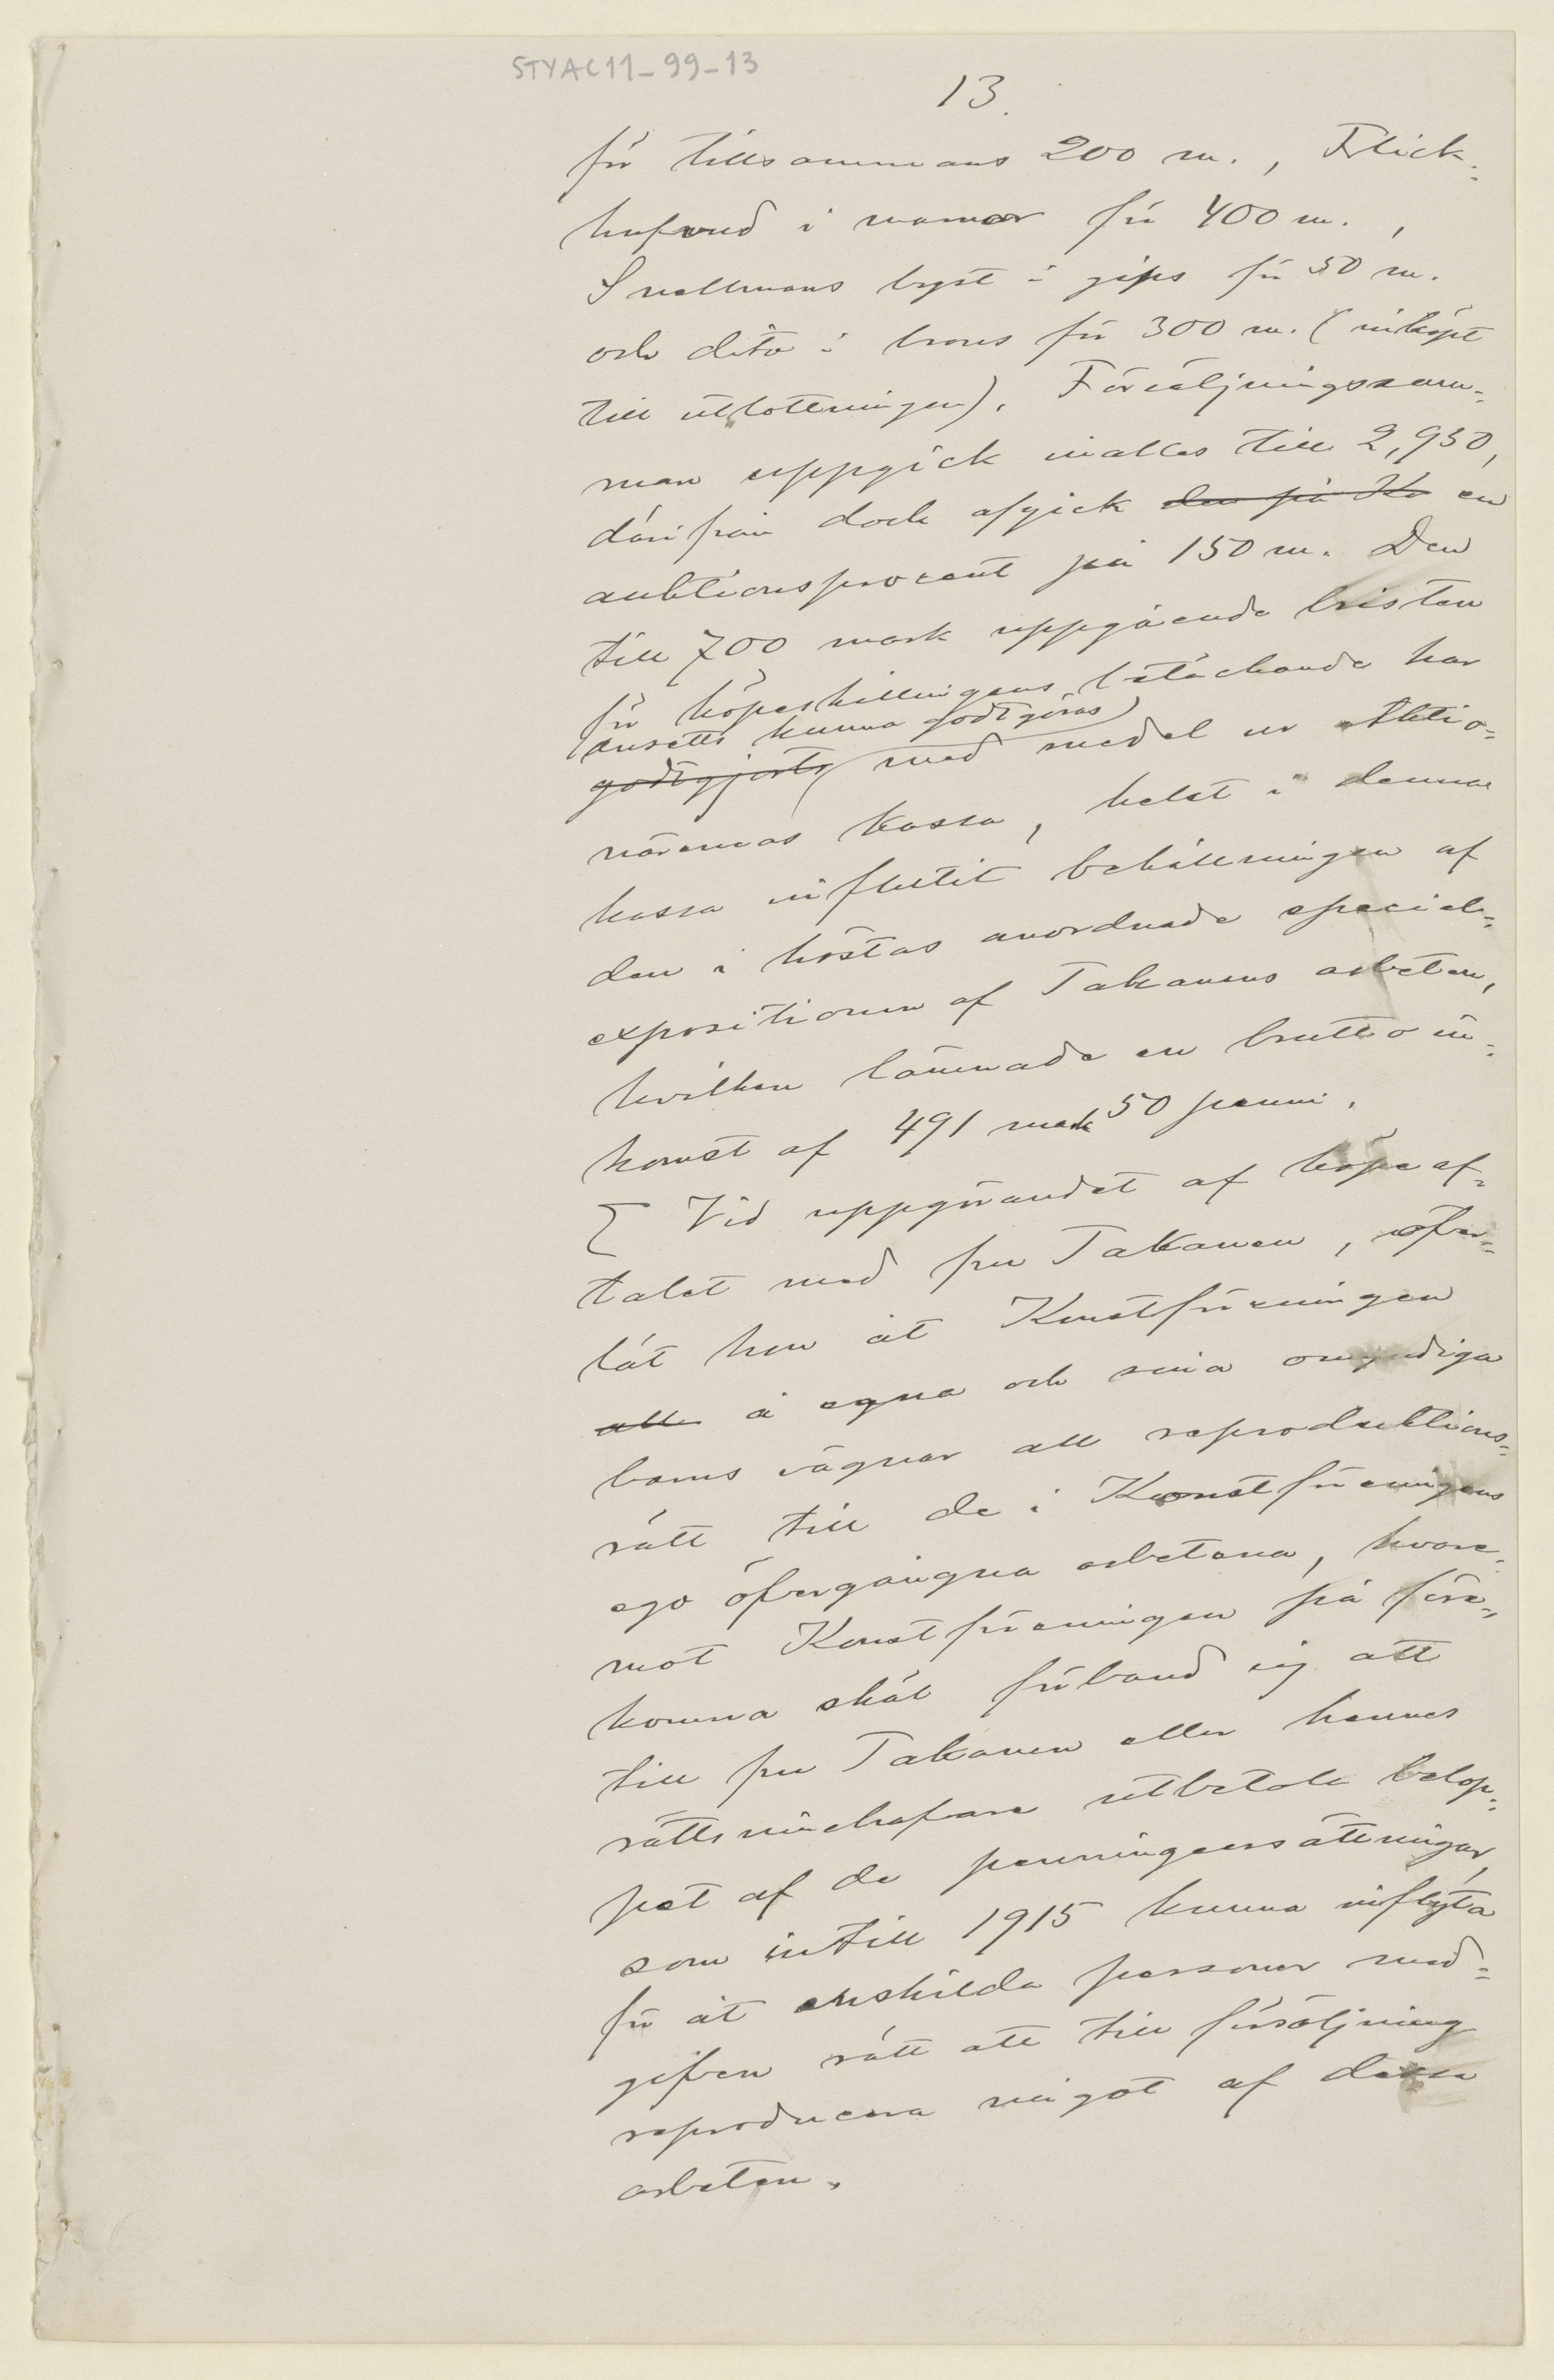 STYAC11-99-13
13.
för tillsammans 200 m., Flick-
hufvud i marmor för 400 m.,
Snellmans byst i gips för 50 m.
och dito i brons för 300 m. (inköpt
till utlottningen). Försäljningssum-
man uppgick inalles till 2,950,
därifrån dock afgick den på Ko en
auktionsprocent på 150 m. Den
till 700 mark uppgående bristen
för köpeskillingens betäckande har
ansetts kunna godtgöras
godtgjorts med medel ur Aktio-
närernas kassa, helst i denna
kassa influtit behållningen af
den i höstas anordnade special-
expositionen af Takanens arbeten,
hvilken lämnade en brutto in-
komst af 491 mark 50 penni.
Vid uppgörandet af köpeaf-
talet med fru Takanen, öfver-
lät hon åt Konstföreningen
all å egna och sina omyndiga
barns vägnar all reproduktions-
rätt till de i Konstföreningens
ego öfvergångna arbetena, hvare-
mot Konstföreningen på före-
komna skäl förband sig att
till fru Takanen eller hennes
rättsinnehafvare utbetala belop-
pet af de penningeersättningar,
som intill 1915 kunna inflyta
för åt enskilda personer med-
gifven rätt att till försäljning
reproducera något af dessa
arbeten.